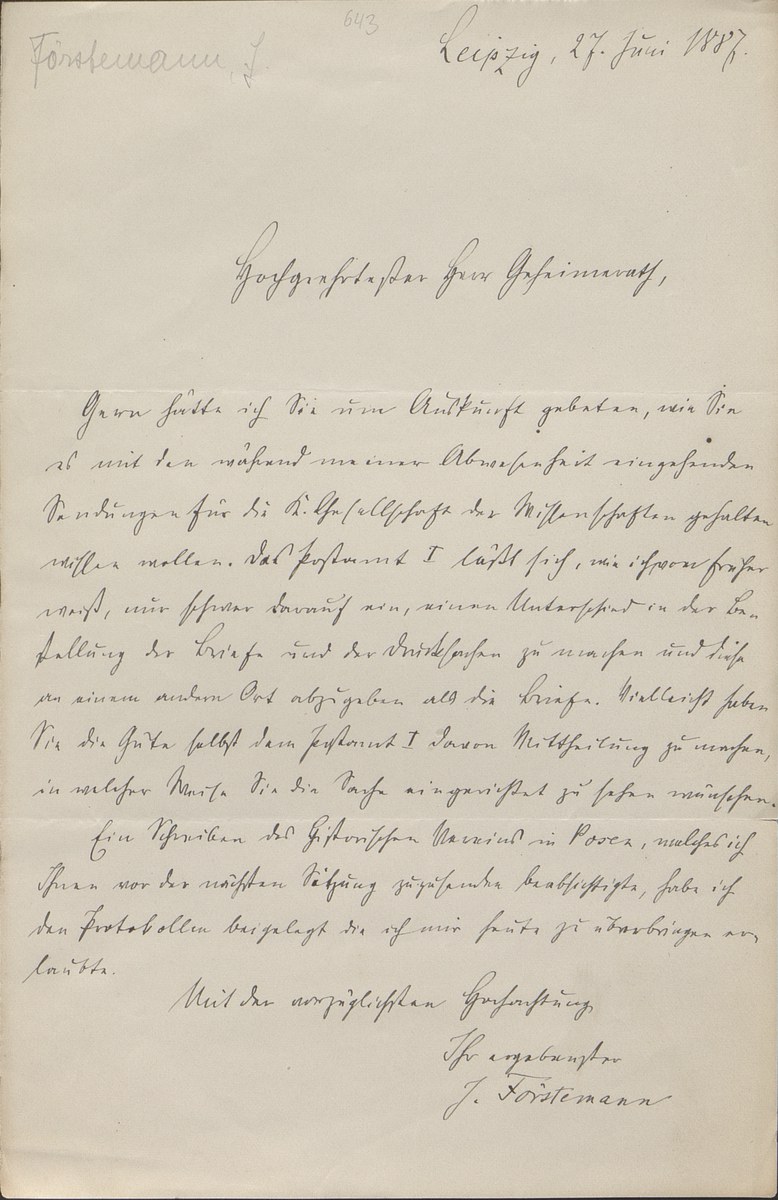 643
Förstemann, J.
Leipzig, 27. Juni 1887.
Hochgeehrtester Herr Geheimerath,
Gern hätte ich Sie um Auskunft gebeten, wie Sie
es mit den während meiner Abwesenheit eingehenden
Sendungen für die K. Gesellschaft der Wissenschaften gehalten
wissen wollen. Das Postamt I läßt sich, wie ich von früher
weiß, nur schwer darauf ein, einen Unterschied in der Be-
stellung der Briefe und der Drucksachen zu machen und diese
an einem andern Ort abzugeben als die Briefe. Vielleicht haben
Sie die Güte selbst dem Postamt I davon Mittheilung zu machen,
in welcher Weise Sie die Sache eingerichtet zu sehen wünschen.
Ein Schreiben des Historischen Vereins in Posen, welches ich
Ihnen vor der nächsten Sitzung zuzusenden beabsichtigte, habe ich
den Protokollen beigelegt die ich mir heute zu überbringen er-
laubte.
Mit der vorzüglichsten Hochachtung
Ihr ergebenster
J. Förstemann